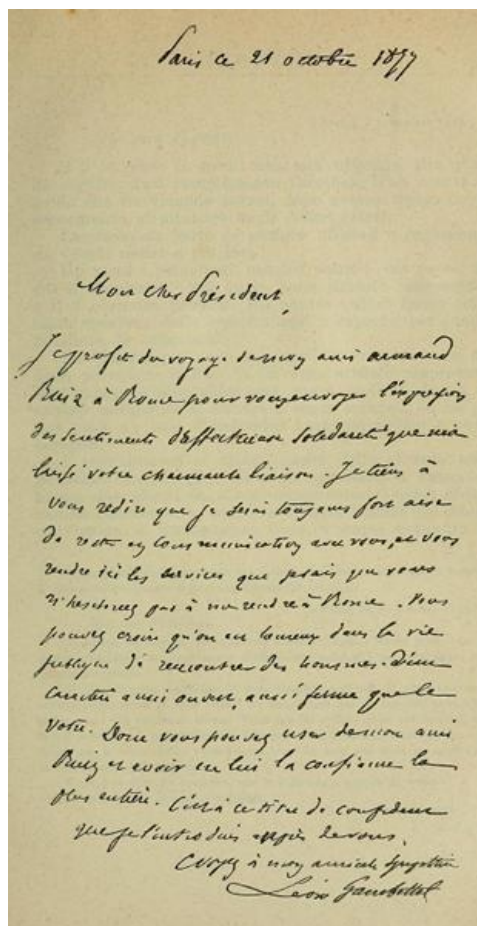 Paris ce 21 octobre 1877
Mon cher Président,
Je profite du voyage de mon ami Armand
Ruiz à Rome pour vous envoyer l'expression
des sentiments d'affectueuse solidarité que m'a
laissé votre charmante liaison. Je tiens à
vous redire que je serai toujours fort aise
de rester en communication avec vous, et vous
rendre ici les services que je sais que vous
n'hésiterez pas à me rendre à Rome. Vous
pouvez croire qu'on est heureux dans la vie
publique de rencontrer des hommes d'un
caractère aussi ouvert, aussi ferme que le
votre. Donc vous pouvez user de mon ami
Ruiz et avoir en lui la confiance la
plus entière. C'est à ce titre de confident
que je l'introduis auprès de vous.
Croyez à mon amicale sympathie
Léon Gambetta